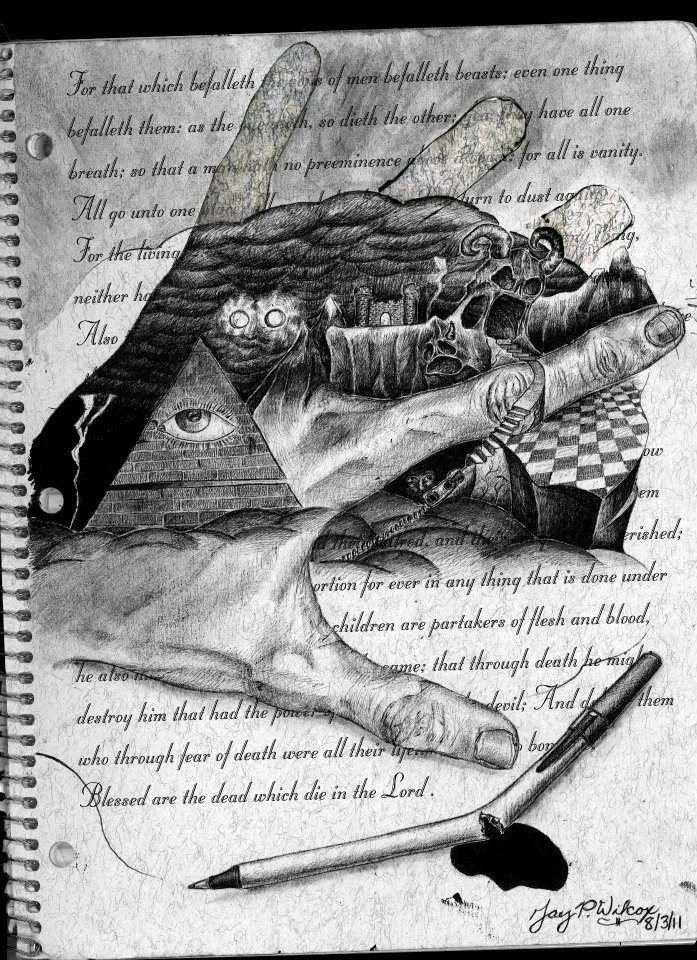 For that which befalleth the sons of men befalleth beasts; even one thing
befalleth them: as the one dieth, so dieth the other; yea, they have all one
breath; so that a man hath no preeminence above a beast: for all is vanity.
All go unto one turn to dust again
For the living ng,
neither ha
Also
ow
em
hatred, and erished;
ortion for ever in any thing that is done under
children are partakers of flesh and blood,
he also same; that through death he migh
destroy him that had the power devil; And d them
who through fear of death were all their life bon
Blessed are the dead which die in the Lord .
Jay P. Wilcox
8/3/11